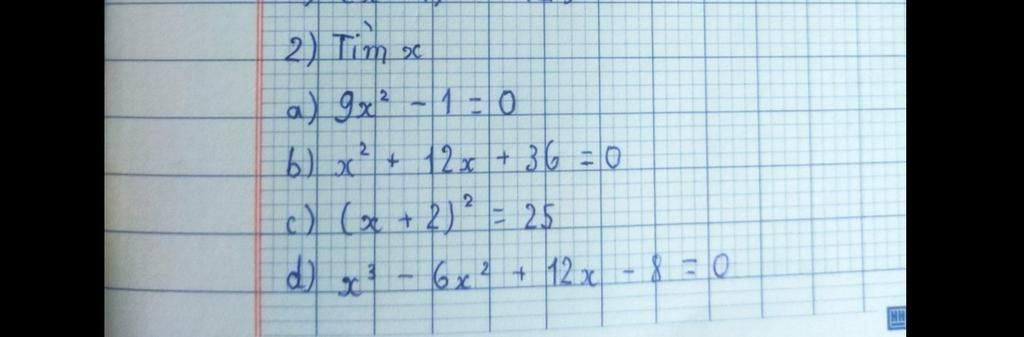 2) Tìm x
a) 9x² - 1 = 0
b) x² + 12x + 36 = 0
c) (x + 2)² = 25
d) x³ - 6x² + 12x - 8 = 0